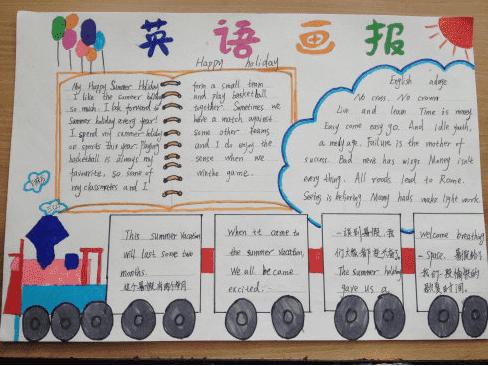 英语画报
Happy holiday
My Happy Summer Holiday
I like the summer holiday
so much. I look forward to
summer holiday every year!
I spend my summer holiday
on sports this year. Playing
basketball is always my
favourite. So some of
my classmates and I
form a small team
and play basketball
together. Sometimes we
have a match against
some other teams
and I do enjoy the
sense when we
win the game.
English adage
No cross. No crown
Live and learn Time is money
Easy come easy go. And idle youth,
a needy age. Failure is the mother of
success. Bad news has wings Money isn't
everything. All roads lead to Rome.
Seeing is believing. Many hads make light work.
This summer Vacation
will last some two
months.
这个暑假将有两个月
When it came to
the summer vacation,
We all became
excited.
一谈到暑假,我
们大家都
The summer holiday
gave us a
welcome breathing
-space. 暑假给了
我们一段愉快的
时间。